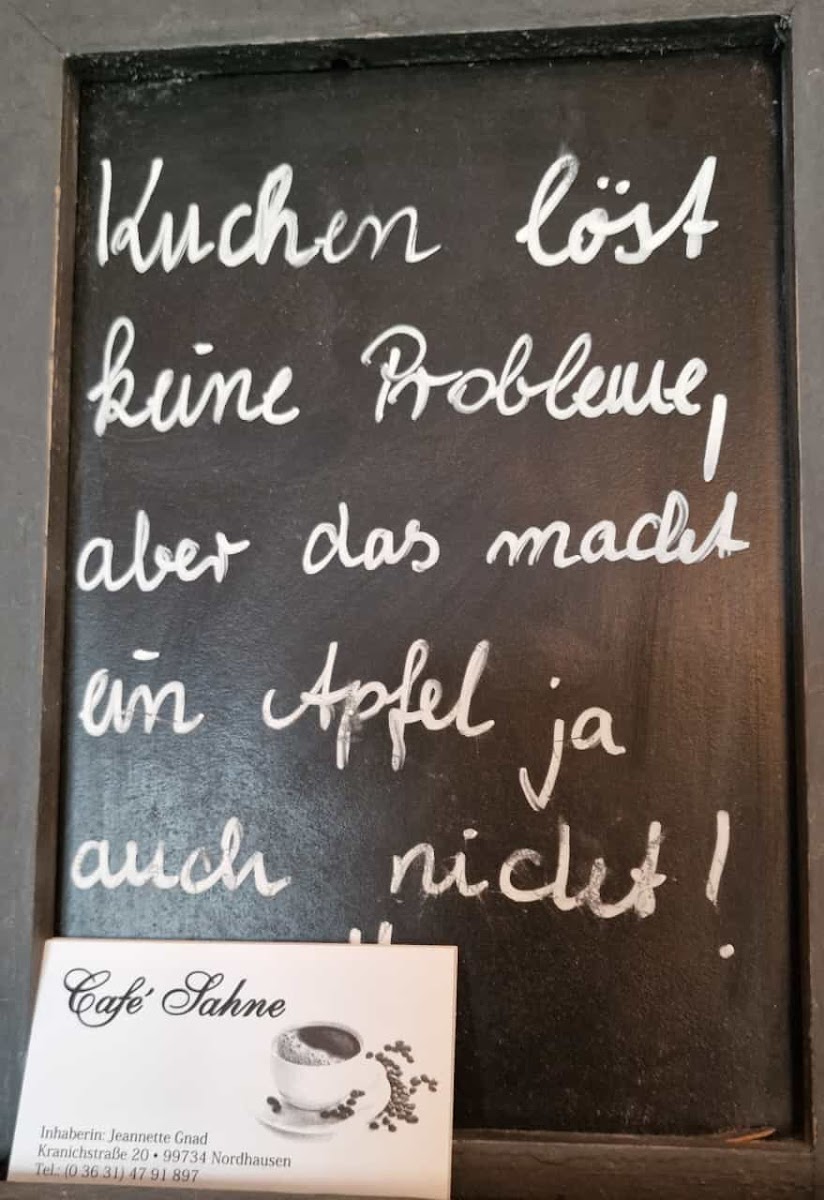 Kuchen löst
keine Probleme,
aber das macht
ein Apfel ja
auch nicht!
Café Sahne
Inhaberin: Jeannette Gnad
Kranichstraße 20 • 99734 Nordhausen
Tel.: (0 36 31) 47 91 897